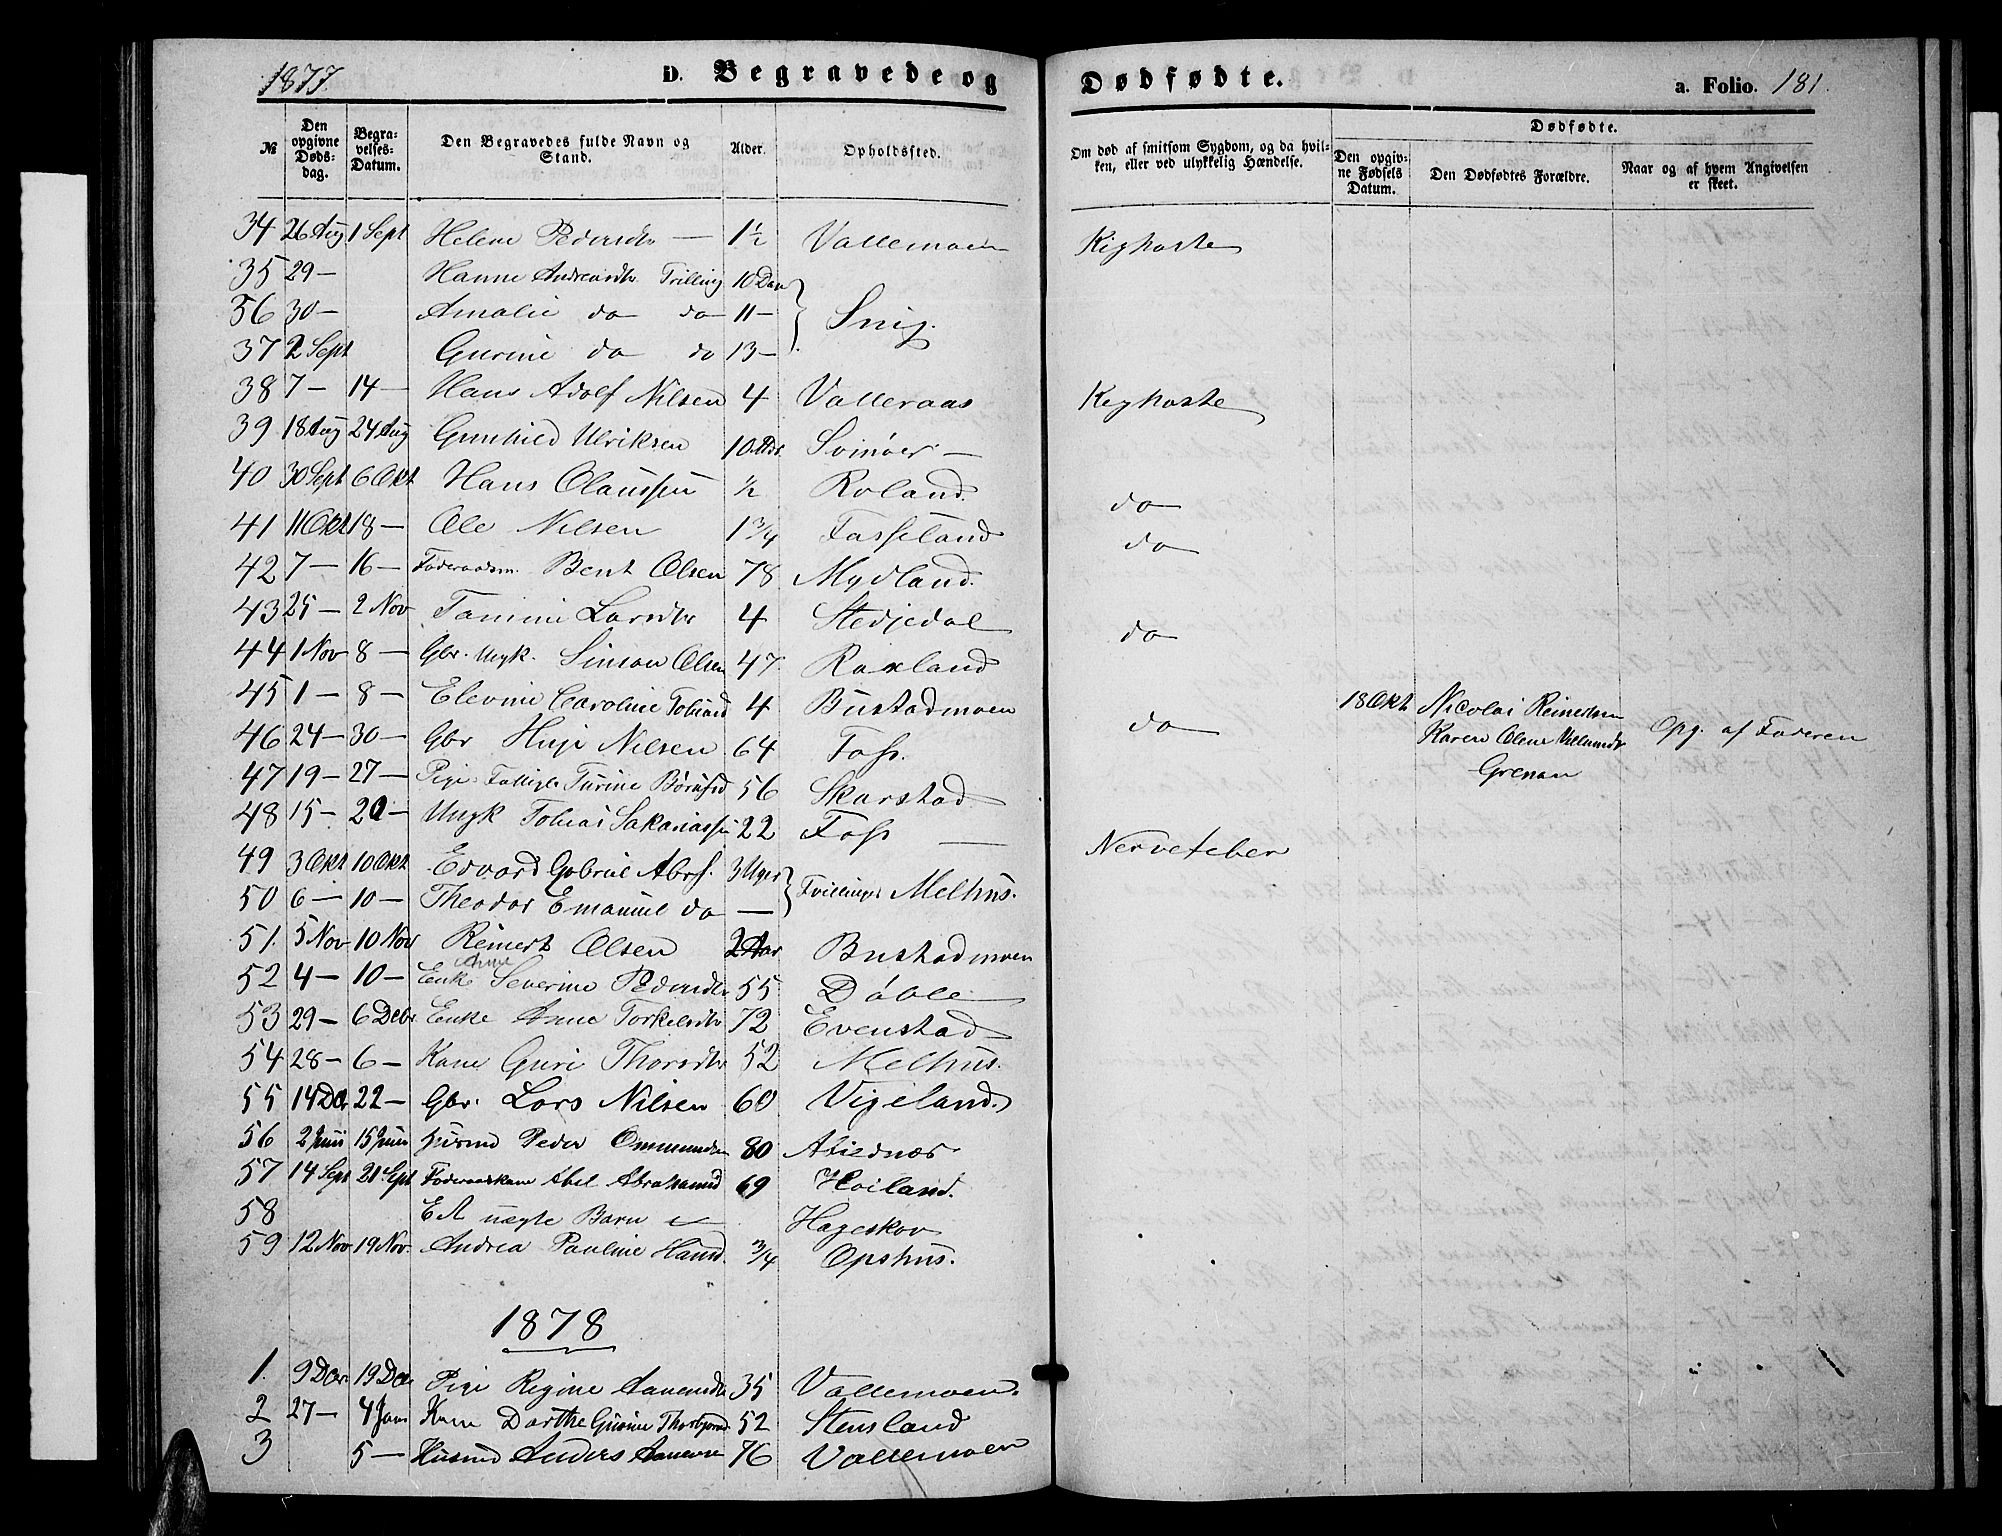 1877.
D. Begravede og Dødfødte. a. Folio. 181.
№ Den opgivne Døds-dag. Begra-velses-Datum. Den Begravedes fulde Navn og Stand. Alder. Opholdssted. Om død af smitsom Sygdom, og da hvil-ken, eller ved ulykkelig Hændelse. Dødfødte. Den opgiv-ne Fødsels Datum. Den Dødfødtes Forældre. Naar og af hvem Angivelsen er skeet.
34 26 Aug 1 Sept Helene Pedersdtr — 1½ Vallemoen Kighoste
35 29 — Hanne Andreasdtr Trilling 10 Dav
36 30 — Amalie do do 11 — Snig.
37 2 Sept Gurine do do 13 —
38 7 — 14 — Hans Adolf Nilsen 4 Valleraas Kighoste
39 18 Aug 24 Aug Gunhild Ulriksen 10 Svinøer —
40 30 Sept 6 Okt Hans Olaussen ½ Roland. do
41 11 Okt 18 — Ole Nilsen 1¾ Fasseland do
42 7 — 16 — Føderaadsm. Bent Olsen 78 Mydland.
43 25 — 2 Nov Tomine Larsdtr 4 Stedjedal do
44 1 Nov 8 — Gbr. Ungk. Simon Olsen 47 Roxland
45 1 — 8 — Elevine Caroline Tobiasd 4 Bustadmoen do 18 Okt Nicolai Reinertsen
46 24 — 30 — Gbr Huje Nilsen 64 Foss. Karen Olene Grenan Opg. af Faderen
47 19 — 27 — Pige Turine 56 Skarstad
48 15 — 20 — Ungk Tobias Sakariassen 22 Foss — Nervefeber
49 3 Okt 10 Okt Edvard Gabriel Abrs. 3 Uger
50 6 — 10 — Theodor Emanuel do — Tvillinger Melhus.
51. 5 Nov 10 Nov Reinert Olsen 2 Aar Bustadmoen
52 4 — 10 — Enke Anne Severine Pedersdtr 55 Døble
53 29 — 6 Debr Enke Anne Torkelsdtr 72 Evenstad
54 28 — 6 — Kone Guri Thorsdtr 52 Melhus.
55 14 Der 22 — Gbr. Lars Nilsen 60 Vigeland.
56 2 Juni 15 Juni Husmd Peder Ommundsen 80
57 14 Sept 21 Sept Føderaadskone Abel Abrahamsd 69 Hoiland.
58 Et uægte Barn Hageskov
59 12 Nov 19 Nov. Andrea Pauline Hansd. ¾ Opshus.
1878
1. 9 Der. 19 Der Pige Regine Aanensdtr 35 Vallemoen.
2 27 — 4 Jan Kone Dorthe Gurine Thorbjørnsd 52 Stensland
3 5 — Husmd Anders Aanensen 76 Vallemoen